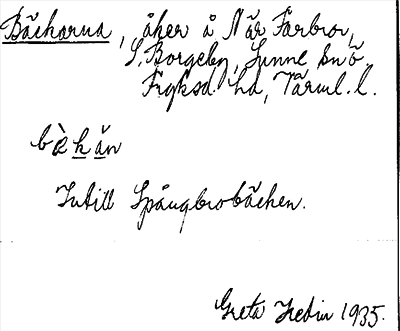 Bäckarna, åker å När Färbror,
S. Borgeby, Sunne snö
Fryksd. hd, Värml. l.
bèkăn
Intill Spångbrobäcken.
Greta Hedin 1935.